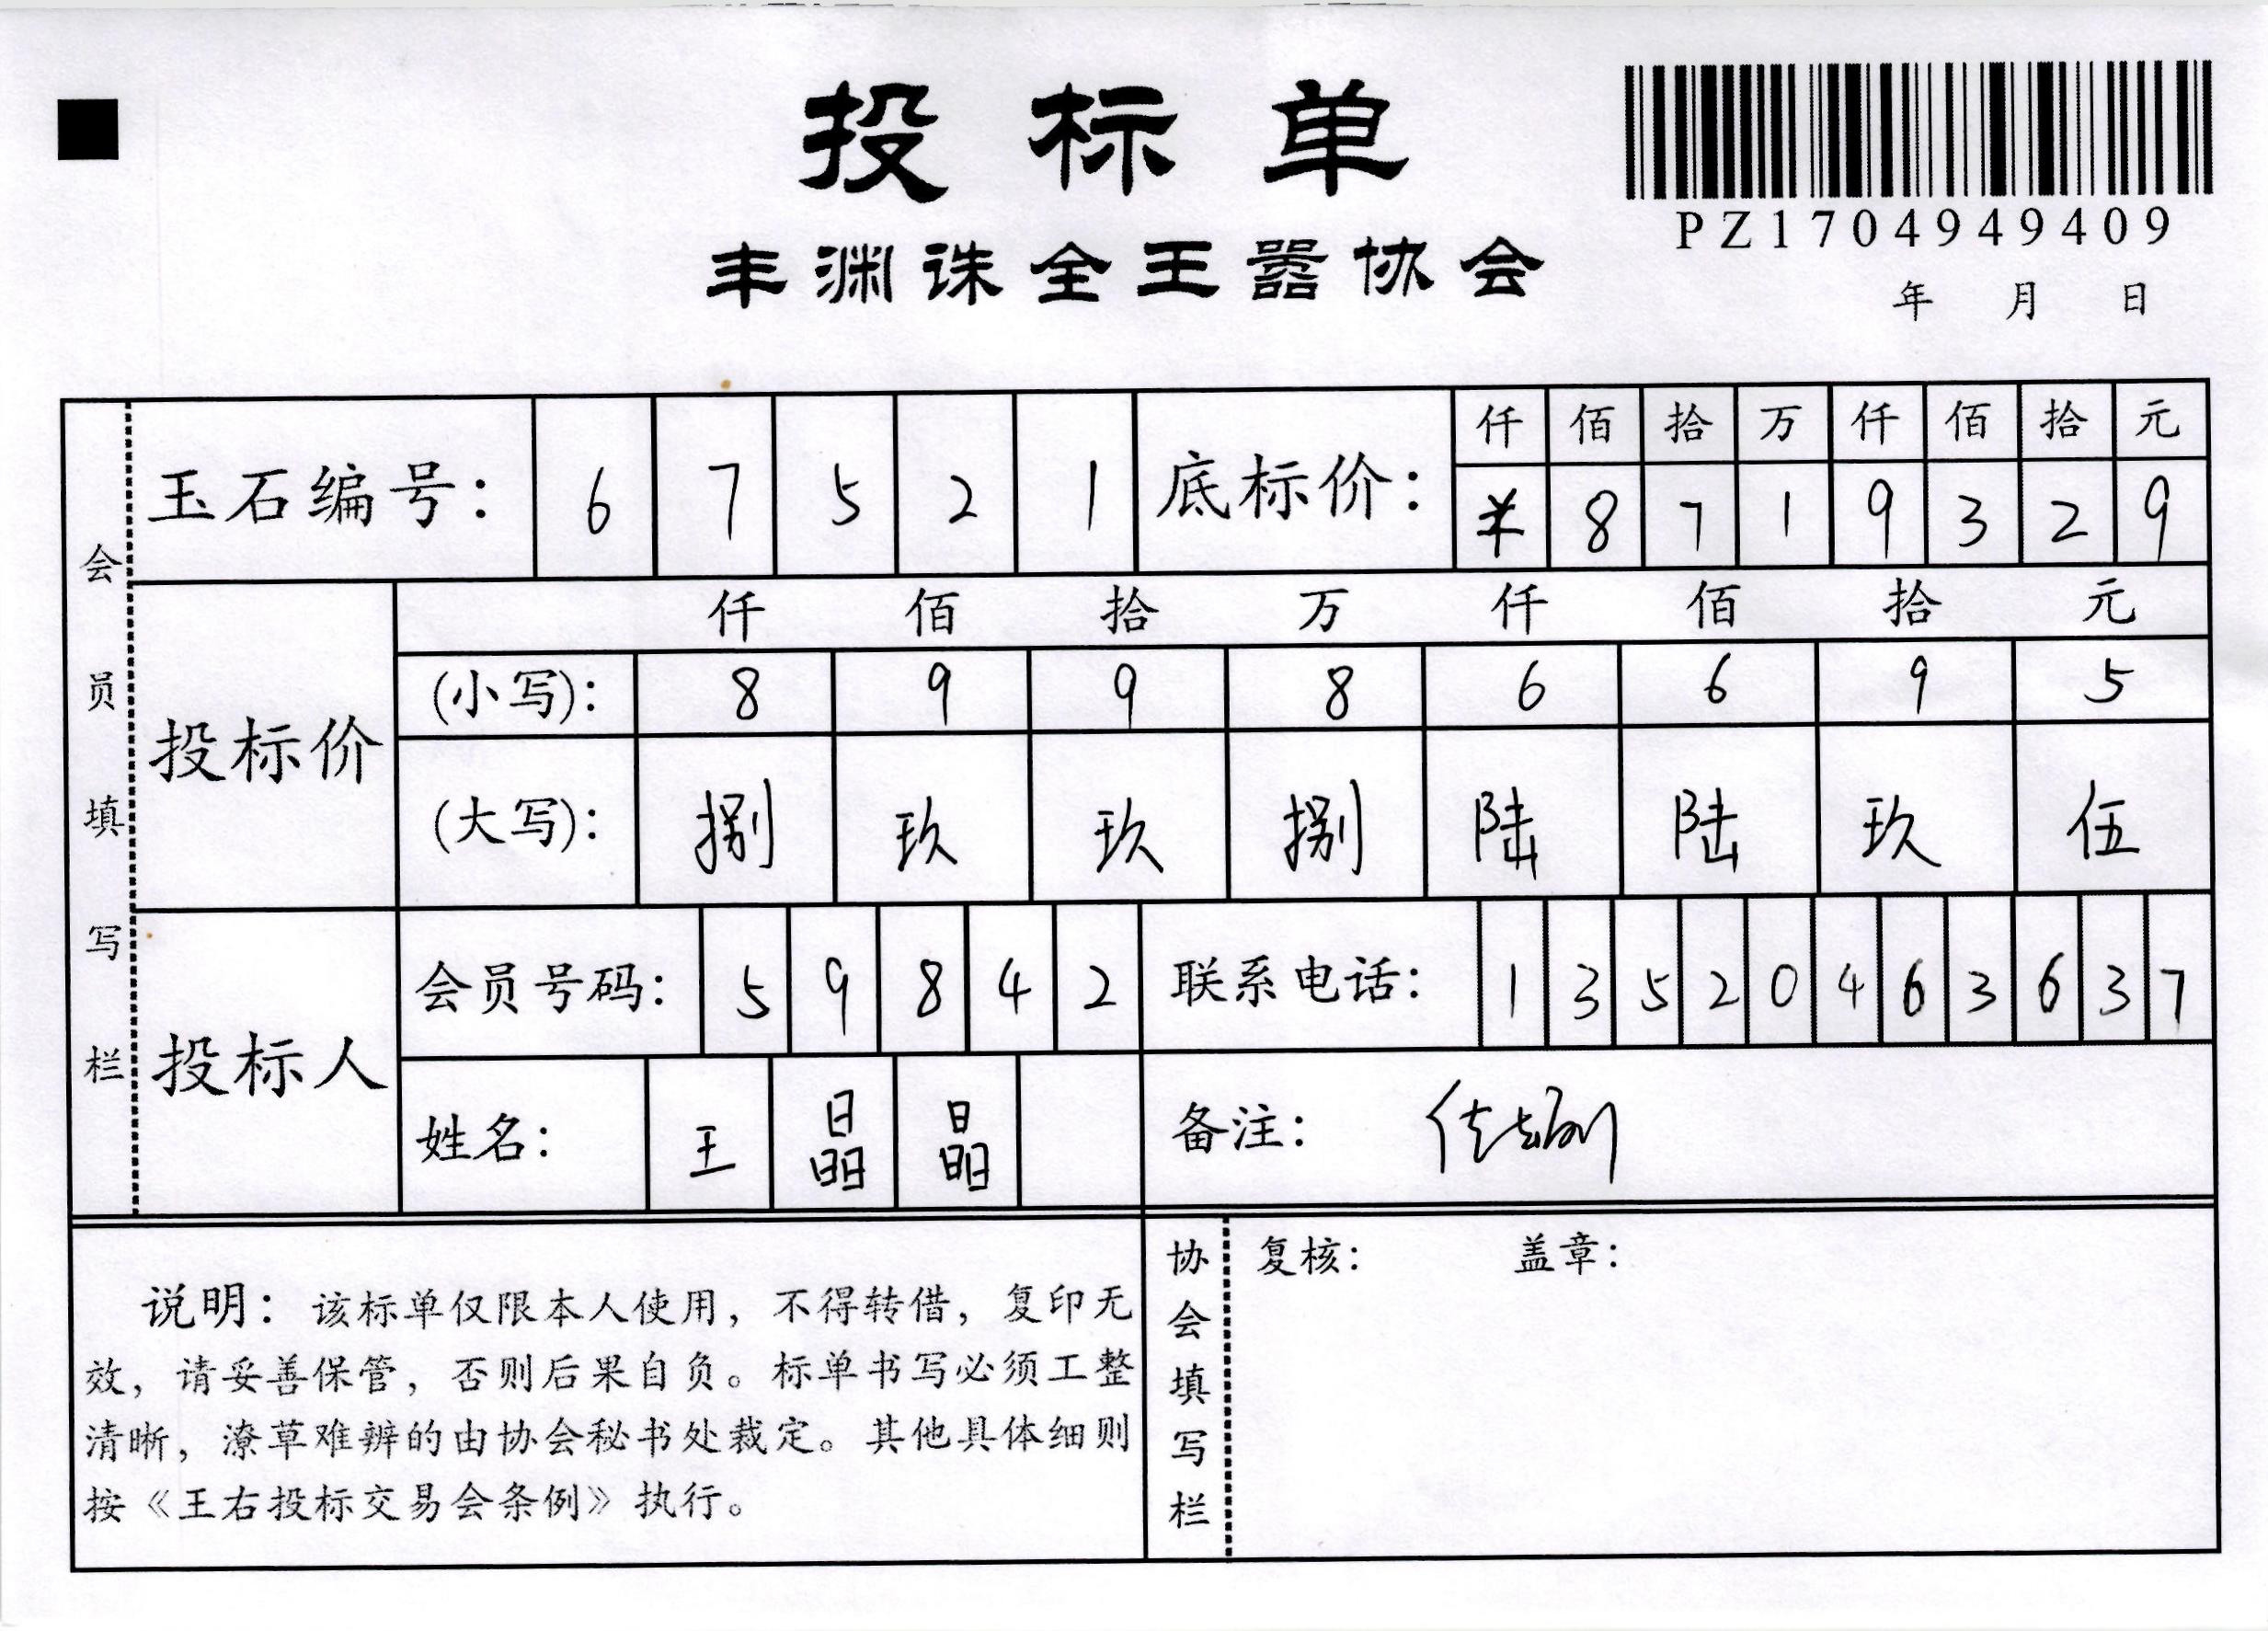 投标单
PZ1704949409
丰渊诛全王嚣协会
年 月 日
会员填写栏
玉石编号： 6 7 5 2 1
底标价： 仟 佰 拾 万 仟 佰 拾 元
¥ 8 7 1 9 3 2 9
投标价
仟 佰 拾 万 仟 佰 拾 元
(小写)： 8 9 9 8 6 6 9 5
(大写)： 捌 玖 玖 捌 陆 陆 玖 伍
投标人
会员号码： 5 9 8 4 2
联系电话： 1 3 5 2 0 4 6 3 6 3 7
姓名： 王 晶 晶
备注：
说明：该标单仅限本人使用，不得转借，复印无
效，请妥善保管，否则后果自负。标单书写必须工整
清晰，潦草难辨的由协会秘书处裁定。其他具体细则
按《王右投标交易会条例》执行。
协会填写栏
复核： 盖章：